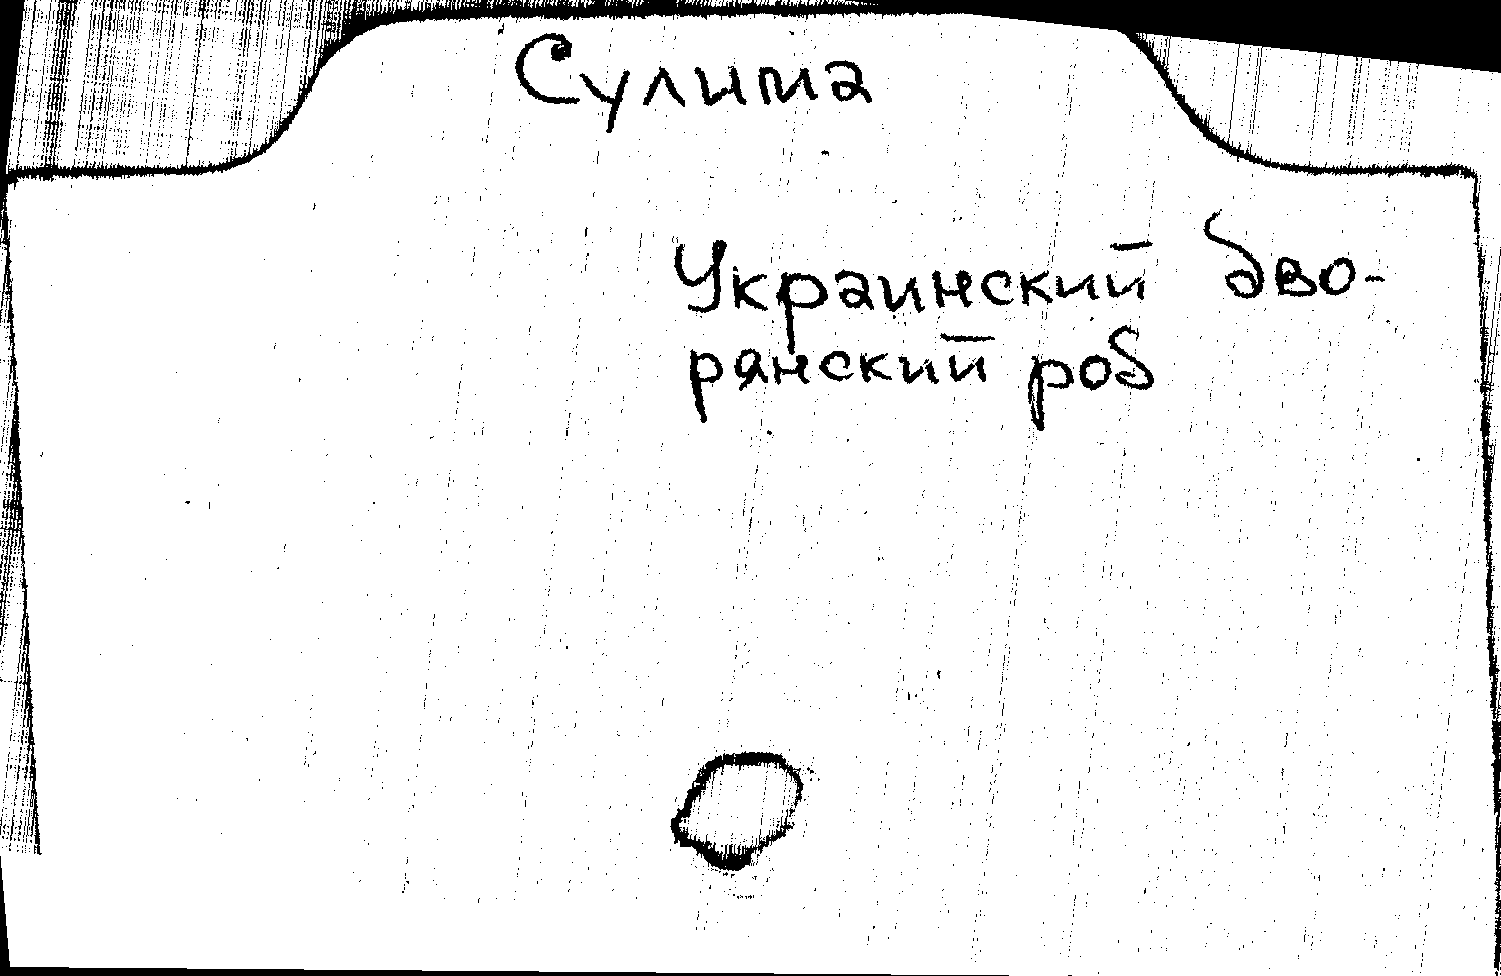 Сулима
Украинский дво-
рянский род